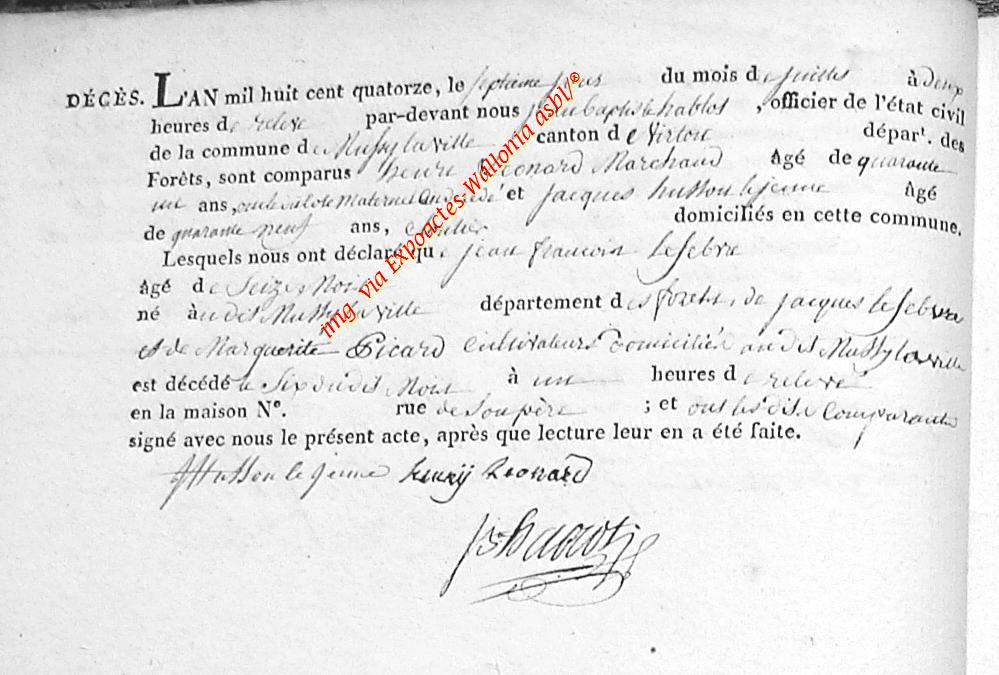 DÉCÈS. L'AN mil huit cent quatorze, le septieme jour du mois de juillet à deux
heures de relevé par-devant nous jean baptiste hablot, officier de l'état civil
de la commune de Mussy la ville canton de Virton dépar^t. des
Forêts, sont comparus henri Leonard Marchand âgé de quarante
un ans, oncle maternel du décédé et jacques husson le jeune âgé
de quarante neuf ans, domiciliés en cette commune.
Lesquels nous ont déclaré que jean francois Lefebvre
âgé de seize Mois
né à udit Mussy la ville département des forets, de jacques lefebvre
et de Marguerite Picard cultivateurs domiciliés audit Mussy la ville
est décédé le six dudit Mois à un heures de relevé
en la maison N°. rue de son père ; et ont lesdits Comparants
signé avec nous le présent acte, après que lecture leur en a été faite.
JHusson le jeune henrÿ Leonard
JB hablot
img via Expoactes Wallonia asbl/®